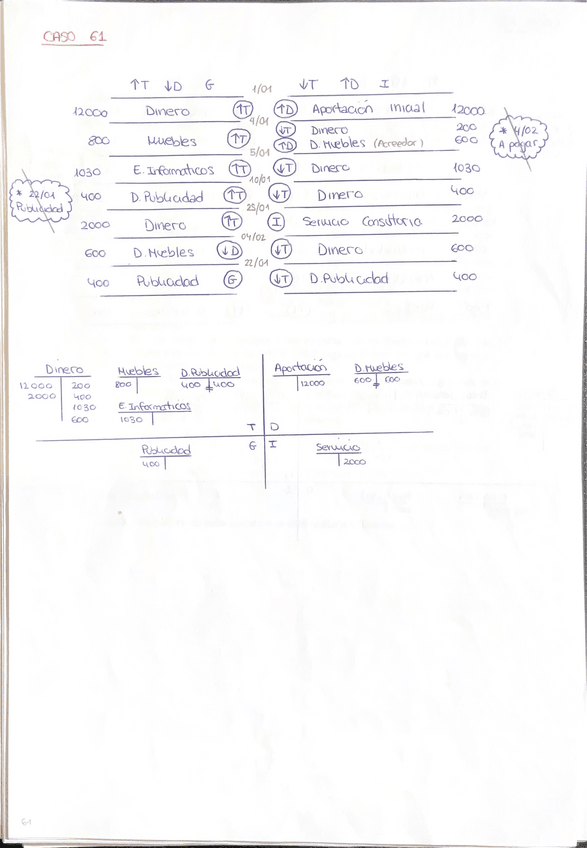 CASO 61
↑T ↓D G 1/01 ↓T ↑D I
12000 Dinero ↑T ↑D Aportación Inicial 12000
4/01
800 Muebles ↑T ↓T Dinero 200
↑D D. Muebles (Acreedor) 600
* 4/02
A pagar
5/01
1030 E. Informaticos ↑T ↓T Dinero 1030
10/01
* 22/01
Publicidad
400 D. Publicidad ↑T ↓T Dinero 400
25/01
2000 Dinero ↑T I Servicio Consultoria 2000
04/02
600 D. Muebles ↓D ↓T Dinero 600
22/01
400 Publicidad G ↓T D. Publicidad 400
Dinero Muebles D. Publicidad Aportación D. Muebles
12000 200 800 400 400 12000 600 600
2000 400
1030 E. Informaticos
600 1030
T D
G I
Publicidad Servicio
400 2000
61